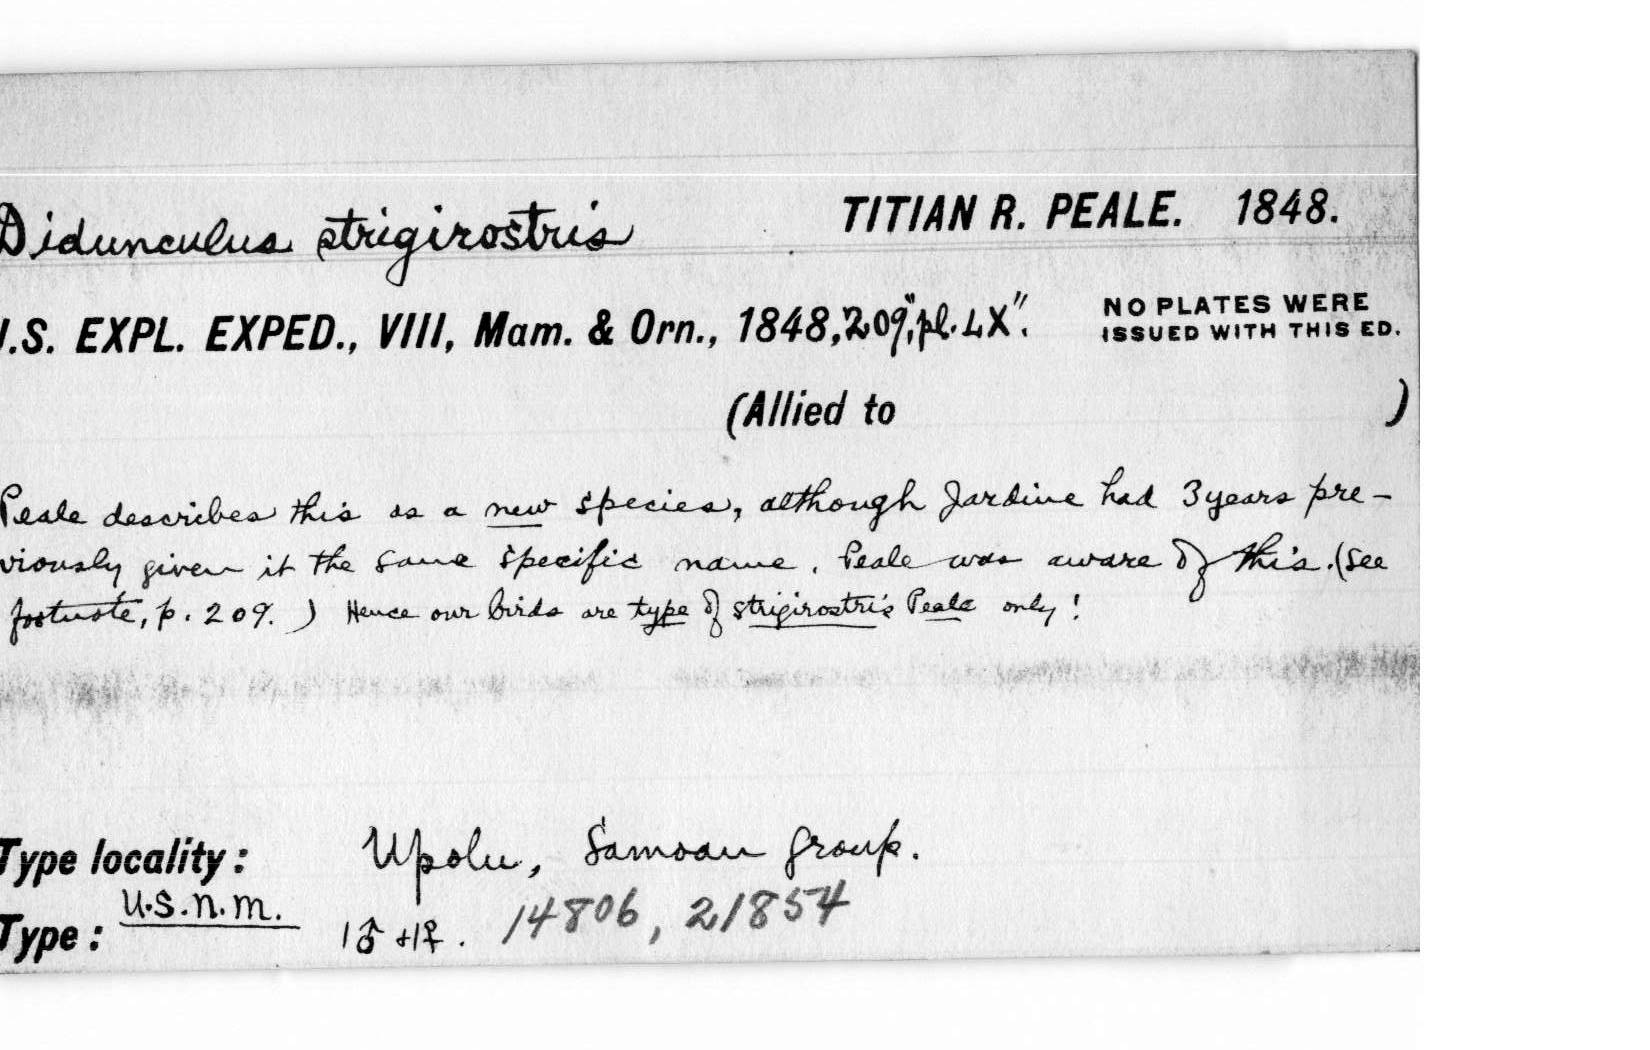 Didunculus strigirostris TITIAN R. PEALE. 1848.
U.S. EXPL. EXPED., VIII, Mam. & Orn., 1848, 209, "pl. LX". NO PLATES WERE
ISSUED WITH THIS ED.
(Allied to )
Peale describes this as a new species, although Jardine had 3 years pre-
viously given it the same specific name. Peale was aware of this. (See
footnote, p. 209.) Hence our birds are type of strigirostris Peale only!
Type locality: Upolu, Samoan group.
Type: U.S.N.M. 1♂ + 1♀. 14806, 21854